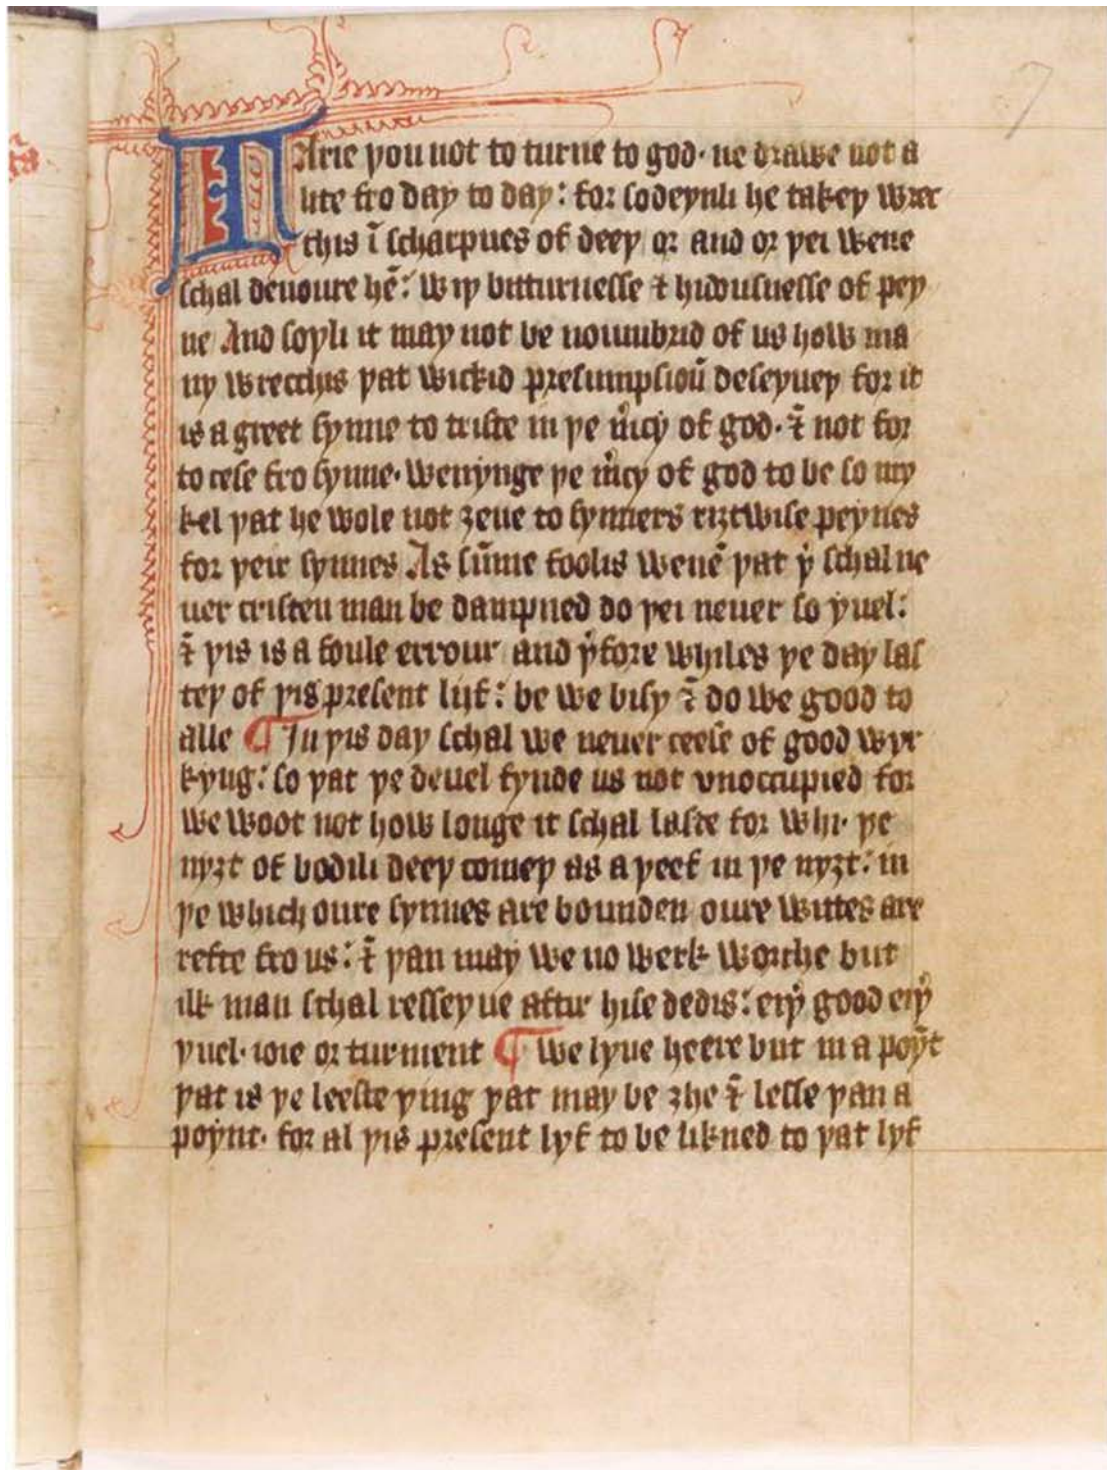 7
TArie þou not to turne to god· ne drawe not a
lite fro day to day: for sodeynli he takeþ wrec
chis ī scharpnes of deeþ or and or þei wene
schal deuoure hē: wiþ bitturnesse ⁊ hidousnesse of pey
ne And soþli it may not be noumbrid of us how ma
ny wrecchis þat wickid presumpsioū deseyueþ for it
is a greet synne to triste in þe mͨcy of god· ⁊ not for
to cese fro synne· wenynge þe mͨcy of god to be so my
kel þat he wole not ȝeue to synners riȝtwise peynes
for þeir synnes As sūme foolis wenē þat þͬ schal ne
uer cristen man be dampned do þei neuer so yuel:
⁊ þis is a foule errour and þͬfore whiles þe day las
teþ of þis present lijf: be we bisy ⁊ do we good to
alle ¶ In þis day schal we neuer ceese of good wyr
kyng: so þat þe deuel fynde us not vnoccupied for
we woot not how longe it schal laste for whi· þe
nyȝt of bodili deeþ comeþ as a þeef in þe nyȝt: in
þe which oure synnes are bounden oure wittes are
refte fro us: ⁊ þan may we no werk worche but
ilk man schal resseyue aftir hise dedis: eiþͬ good eiþͬ
yuel· ioie or turment ¶ We lyue heere but in a poȳt
þat is þe leeste þing þat may be ȝhe ⁊ lesse þan a
poynt· for al þis present lyf to be likned to þat lyf